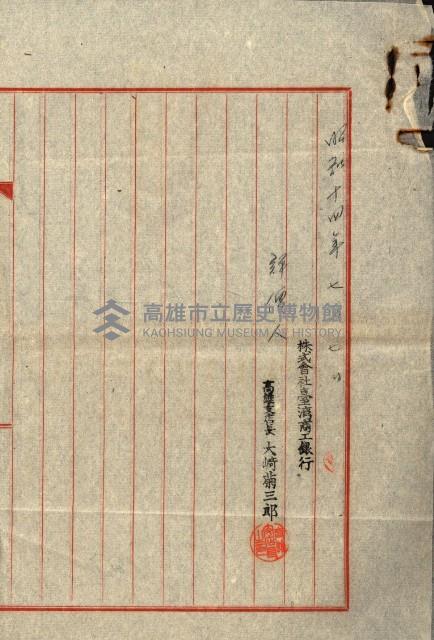 昭和十四年七月七日
評価人
株式會社臺灣商工銀行
高雄支店長 大﨑菊三郎
高雄市立歷史博物館
KAOHSIUNG MUSEUM OF HISTORY